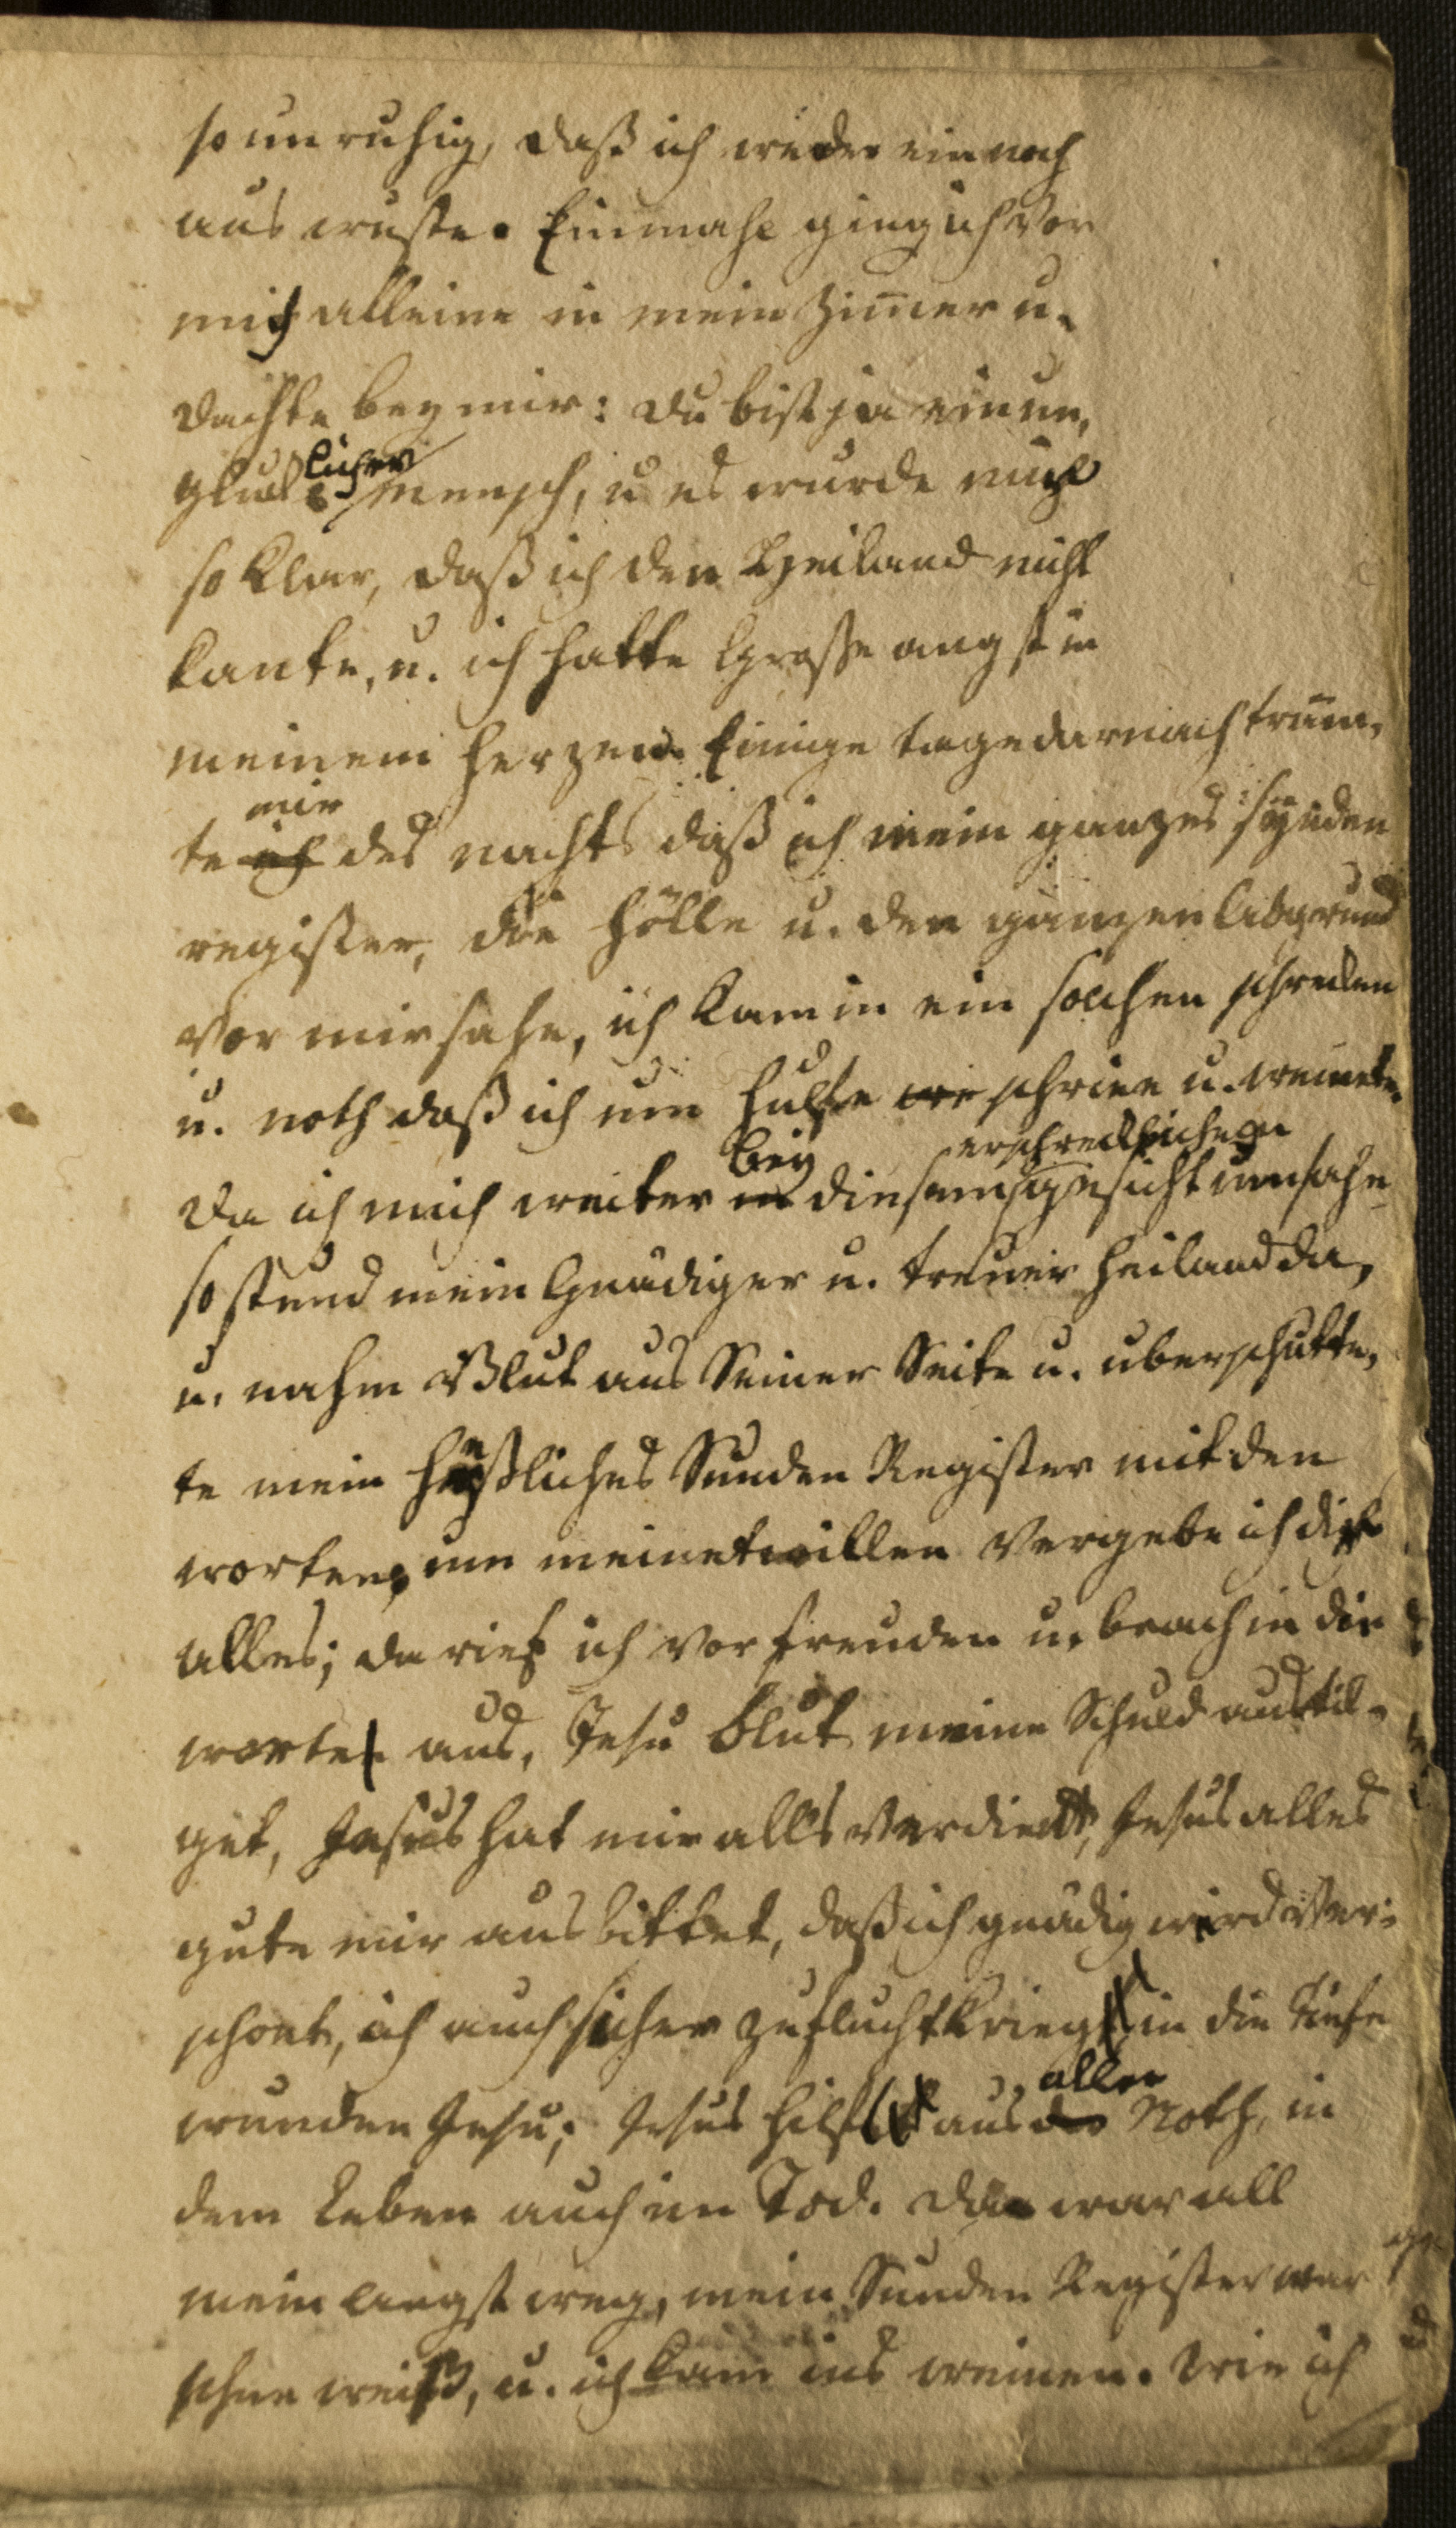 so unruhig, daß ich weder ein noch
aus wuste. Einmahl ging ich vor
mich alleine in mein Zimer u.
dachte bey mir: du bist ja ein un,
gluklicher mensch, u es wurde mir
so klar, daß ich den Heiland nicht
kante, u. ich hatte Grosse angst in
meinem herzen. Einige tage darnach träum,
te ich mir des nachts daß ich mein ganzes sünden
register, die hölle u. den ganzen Abgrund
vor mir sahe, ich kam in ein solchen schrecken
u. noth daß ich um hülfe we schriee u. weinete.
da ich mich weiter in bey diesem erschrecklichen gesicht umsahe
so stund mein Gnädiger u. treuer heiland da,
u. nahm Blut aus Seiner Seite u. uberschutte,
te mein heßliches Sünden Register mit den
worten, um meinetwillen vergebe ich dir
alles; da rief ich vor freuden u. brach in die
worte aus, Jesu blut meine Schuld austil-
get, Jesus hat mir alls verdient, Jesus alles
gute mir aus bittet, daß ich gnädig werd ver-
schont, ich auch sicher zuflucht krieg in die tiefe
wunden Jesu; Jesus hilft aus der aller Noth, in
dem Leben auch im Tod. da war all
mein angst weg, mein Sünden Register war
schne weiß, u. ich kam ins weinen. Wie ich